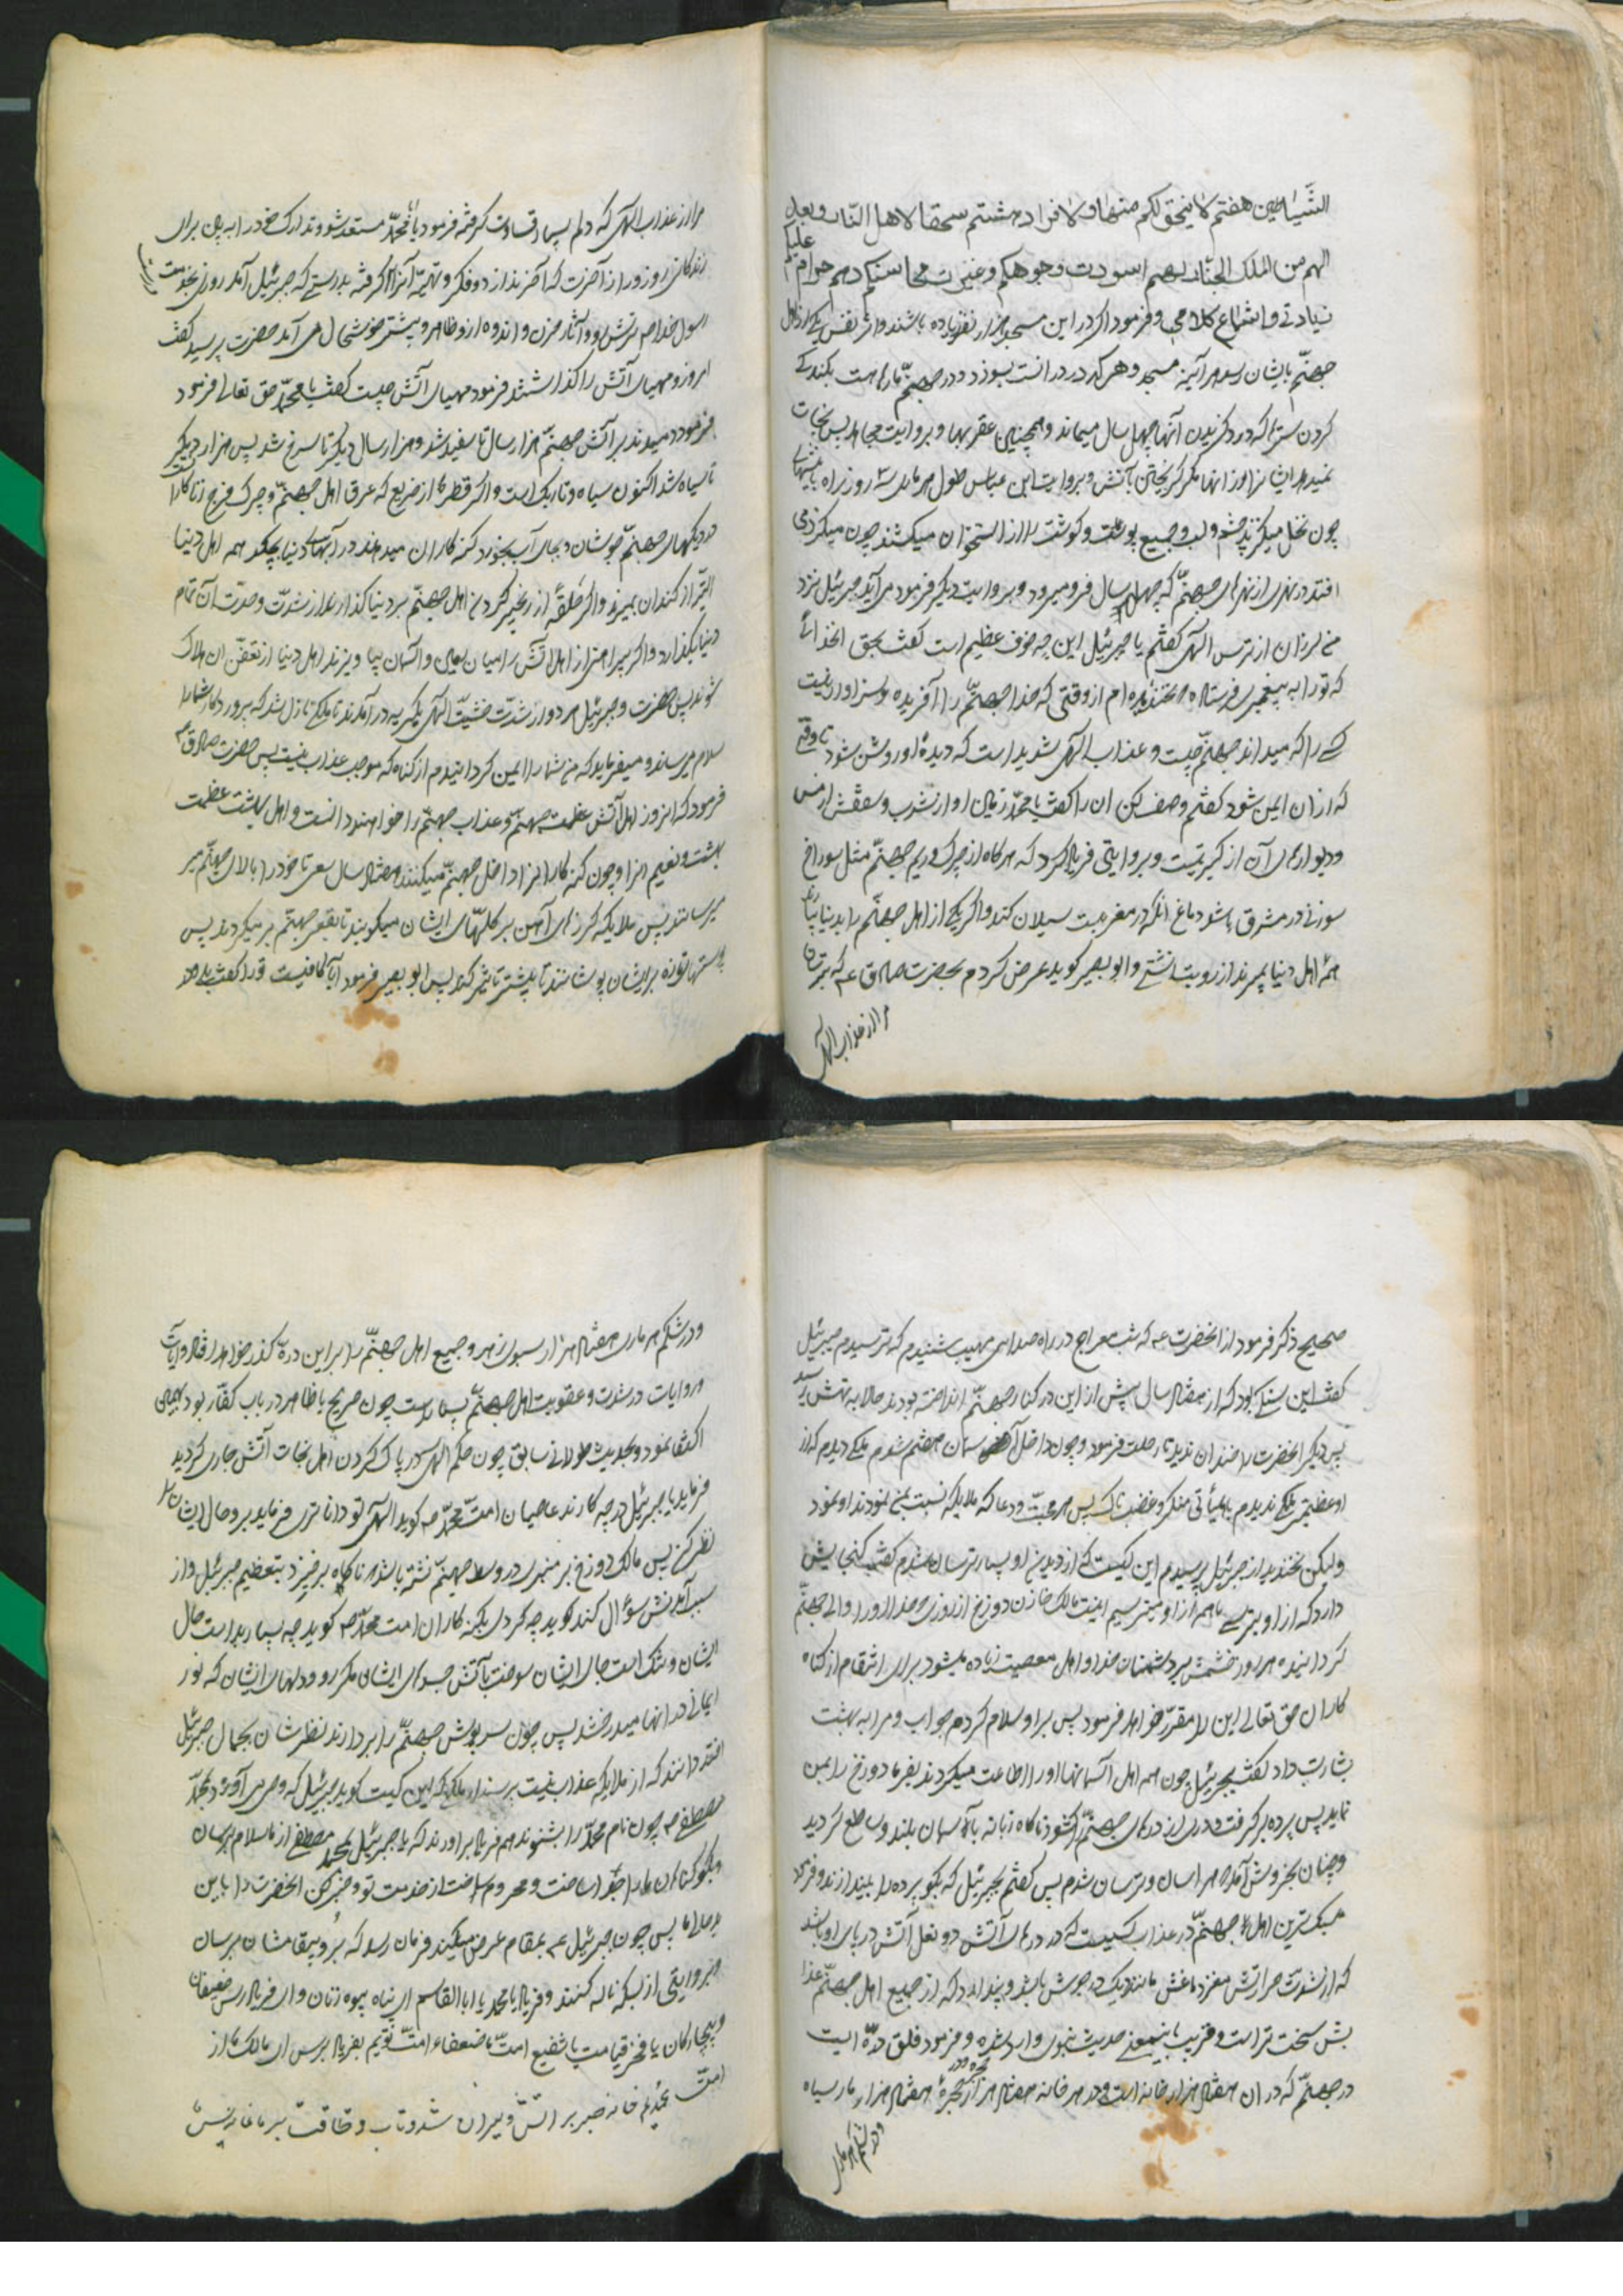 الشیاطین هفتم لا یحق لکم منها و لا فراد هشتم سحقا لاهل النار و بعد
لهم من الملک الجبار بهم اسودت وجوهکم و غیرت محاسنکم دهم حرام علیکم
زیادتی و انقطاع کلامی و فرمود اگر در این مسجد هزار نفر زیاده باشند و اثر نفس یکی از اهل
جهنم بایشان رسد هر آینه مسجد و هر که در در انست بسوزد و در جهنم مارها هست بکندگی
کردن شتر که درد گزیدن آنها چهل سال میماند و همچنین عقربها و بروایت مجاهد پس نجات
نمیدهد ایشانرا از انها مگر گریختن بآتش و بروایت ابن عباس طول هر ماری سه روزه راه نیشهای
چون نخل میگزند چشم و لب و جمیع پوست و گوشت را از استخوان میکشند چون میگریزد می
افتد در نهری از نهرهای جهنم که چهل سال فرو میرود و بروایت دیگر فرمود می آید جبرئیل نزد
من لرزان از ترس الهی گفتم یا جبرئیل این چه خوف عظیم است گفت بحق انخدائی
که تو را به پیغمبری فرستاده نخندیده ام از وقتی که خدا جهنم را آفریده و سزاوار نیست
کسی را که میداند جهنم چیست و عذاب الهی شدید است که دیدهٔ او روشن شود تا وقتی
که از ان ایمن شود گفتم وصف کن ان را گفت یا محمد زمین او از سرب و سقفش از مس
و دیوارهای آن از کبریتیست و بروایتی فریاد کرد که هرگاه از چرک و ریم جهنم مثل سوراخ
سوزنی در مشرق باشد دماغ انکه در مغربست سیلان کند و اگر یکی از اهل جهنم را بدنیا بیارند
همهٔ اهل دنیا بمیرند از رویت زشتی و ابو بصیر گوید عرض کردم بحضرت صادق ع که بترسان
مرا از عذاب الهی
مرا از عذاب الهی که دلم بسیار قساوت گرفته فرمود یا ابا محمد مستعد شو و تدارک خود را ببین برای
زندگانی روز دراز آخرت که آخر ندارد و فکر و تهیه آنرا گرفته بدرستی که جبرئیل آمد روزی بخدمت
رسول خدا ص ترش رو و آثار حزن و اندوه از و ظاهر و پیشتر خوشحال می آمد حضرت پرسید گفت
امروز مهیای آتش را گذاشتند فرمود مهیای آتش چیست گفت یا محمد حق تعالی فرمود
فرمود دمیدند بر آتش جهنم هزار سال تا سفید شد و هزار سال دیگر تا سرخ شد پس هزار دیگر
تا سیاه شد اکنون سیاه و تاریک است و اگر قطرهٔ از ضریع که عرق اهل جهنم و چرک فرج زناکارانست
در دیگهای جهنم جوشان و بجای آب بخورد گنه کاران میدهند در آبهای دنیا بچکد همه اهل دنیا
البته از گند ان بمیرند و اگر حلقهٔ از زنجیر گردن اهل جهنم بر دنیا گذارند از شدت و حدت آن تمام
دنیا بگدازد و اگر پیراهنی از اهل آتش را میان زمین و آسمان بیاویزند اهل دنیا از تعفن ان هلاک
شوند پس حضرت و جبرئیل هر دو از شدت خشیت الهی بگریه در آمدند تا ملکی نازل شد که پروردگار شما را
سلام میرساند و میفرماید که من شما را ایمن گردانیدم از گناه که موجب عذاب نیست پس حضرت صادق ع
فرمود که انروز اهل آتش عظمت جهنم و عذاب جهنم را خواهند دانست و اهل بهشت عظمت
بهشت و نعیم انرا و چون گنه کارانرا داخل جهنم میکنند هفتاد سال سعی تا خود را ببالای جهنم میر
میرسانند پس ملایکه گرزهای آهن بر کله های ایشان میکوبند تا بقعر جهنم بر میگردند پس
پوستها تازه بر ایشان پوشانند تا بیشتر تاثیر کند پس ابو بصیر فرمود ایا کافیست تو را گفت بلی و در
صحیح ذکر فرمود از انحضرت ع که شب معراج در راه صدای مهیب شنیدم که ترسیدم جبرئیل
گفت این سنگی بود که از هفتاد سال پیش از این در کنار جهنم انداخته بودند حالا به تهش رسید
پس دیگر انحضرت را خندان ندید تا رحلت فرمود و چون داخل آسمان هفتم شدم ملکی دیدم که از
او عظیمتر ملکی ندیدم با هیأتی منکر و غضبناک پس مرحبت و دعا که ملایکه نسبت بمن نمودند او نمود
ولیکن نخندید از جبرئیل پرسیدم این کیست که از دیدن او بسیار ترسان شدم گفت گنجایش
دارد که از او بترسی ما هم از او میترسیم اینست مالک خازن دوزخ از روزی خدا او را والی جهنم
گردانیده هر روز خشمش بر دشمنان خدا و اهل معصیت زیاده میشود برای انتقام از گناه
کاران حق تعالی این را مقرر خواهد فرمود پس بر او سلام کردم جواب و مرا به بهشت
بشارت داد گفت بجبرئیل چون همه اهل آسمانها او را اطاعت میکردند بفرما دوزخ را بمن
نماید پس پرده بر گرفت و دری از درهای جهنم را گشود ناگاه زبانه باسمان بلند و ساطع گردید
و چنان بخروش آمد هراسان و ترسان شدم پس گفتم بجبرئیل که بگو پرده را بیندازند و فرمود
سبکترین اهل جهنم در عذاب کسیست که در دریای آتش دو نعل آتش در پای او باشد
که از شدت حرارتش مغز دماغش مانند دیک در جوش باشد و پندارد که از جمیع اهل جهنم عذا
بش سخت تر است و قریب باین معنی حدیث نبوی وارد شده و فرمود فلق درّه ایست
در جهنم که در ان هفتاد هزار خانه است و در هر خانه هفتاد هزار حجره و در هر حجرهٔ هفتاد هزار مار سیاه
و در شکم هر ماری
و در شکم هر ماری هفتاد هزار سبوی زهر و جمیع اهل جهنم را بر این درّه گذر خواهد افتاد و آیات
و روایات در شدت و عقوبت اهل جهنم بسیار است چون صریح یا ظاهر در باب کفار بود بهمین
اکتفا نمود و بحدیث طولانی سابق چون حکم الهی در پاک کردن اهل نجات آتش جاری گردید
فرماید یا جبرئیل در چه کارند عاصیان امت محمد ص گوید الهی تو داناتری فرماید برو حال ایشان را
نظر کن پس مالک دوزخ بر منبری در وسط جهنم نشسته باشد ناگاه بر خیزد بتعظیم جبرئیل و از
سبب آمدنش سؤال کند گوید چه کردی بگنه کاران امت محمد ص گوید چه بسیار بد است حال
ایشان و تنگ است جای ایشان سوخت بآتش جسدهای ایشان مگر رو و دلهای ایشان که نور
ایمانی در انها میدرخشد پس چون سرپوش جهنم را بر دارند نظرشان بجمال جبرئیل
افتد دانند که از ملایکه عذاب نیست پرسند این کیست گوید جبرئیل که وحی می آورد بمحمد
مصطفی ص چون نام محمد را بشنوند همه فریاد بر اورند که یا جبرئیل بمحمد مصطفی از ما سلام برسان
و بگو گناهان ما را جدا ساخت و محروم ساخت از خدمت تو و خبر کن انحضرت را باین
بد حالی ما پس چون جبرئیل ع بمقام عرض میکند فرمان رسد که برو پیغامشان برسان
بروایتی از بسکه ناله کنند و فریاد یا محمد یا ابا القاسم ای پناه بیوه زنان و ای فریادرس ضعیفان
و بیچارگان یا فخر قیامت یا شفیع امت ما ضعفاء امت توئیم بفریاد برس ای مالک ما از
امت محمدیم خانه صبر بر اتش ویران شد و تاب و طاقت بر ما نمانده پس